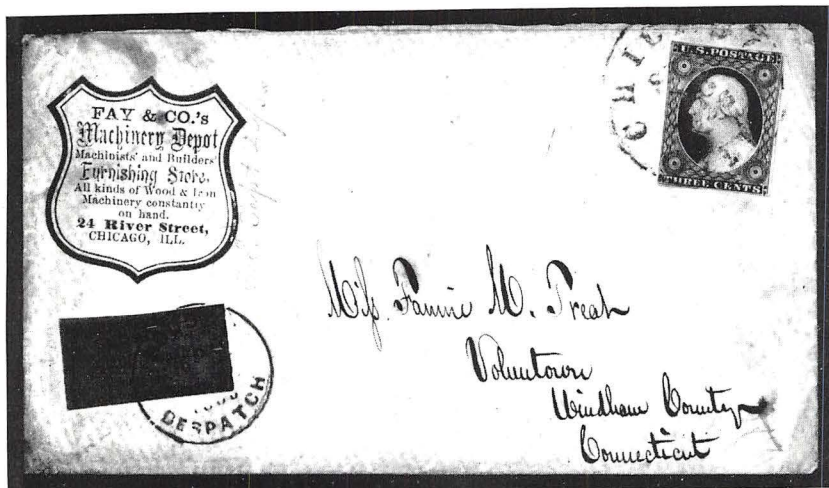 FAY & CO.'s
Machinery Depot
Machinists' and Builders'
Furnishing Store,
All kinds of Wood & Iron
Machinery constantly
on hand.
24 River Street,
CHICAGO, ILL.
U.S. POSTAGE
THREE CENTS
DESPATCH
Miss Fannie M. Treat
Voluntown
Windham County
Connecticut